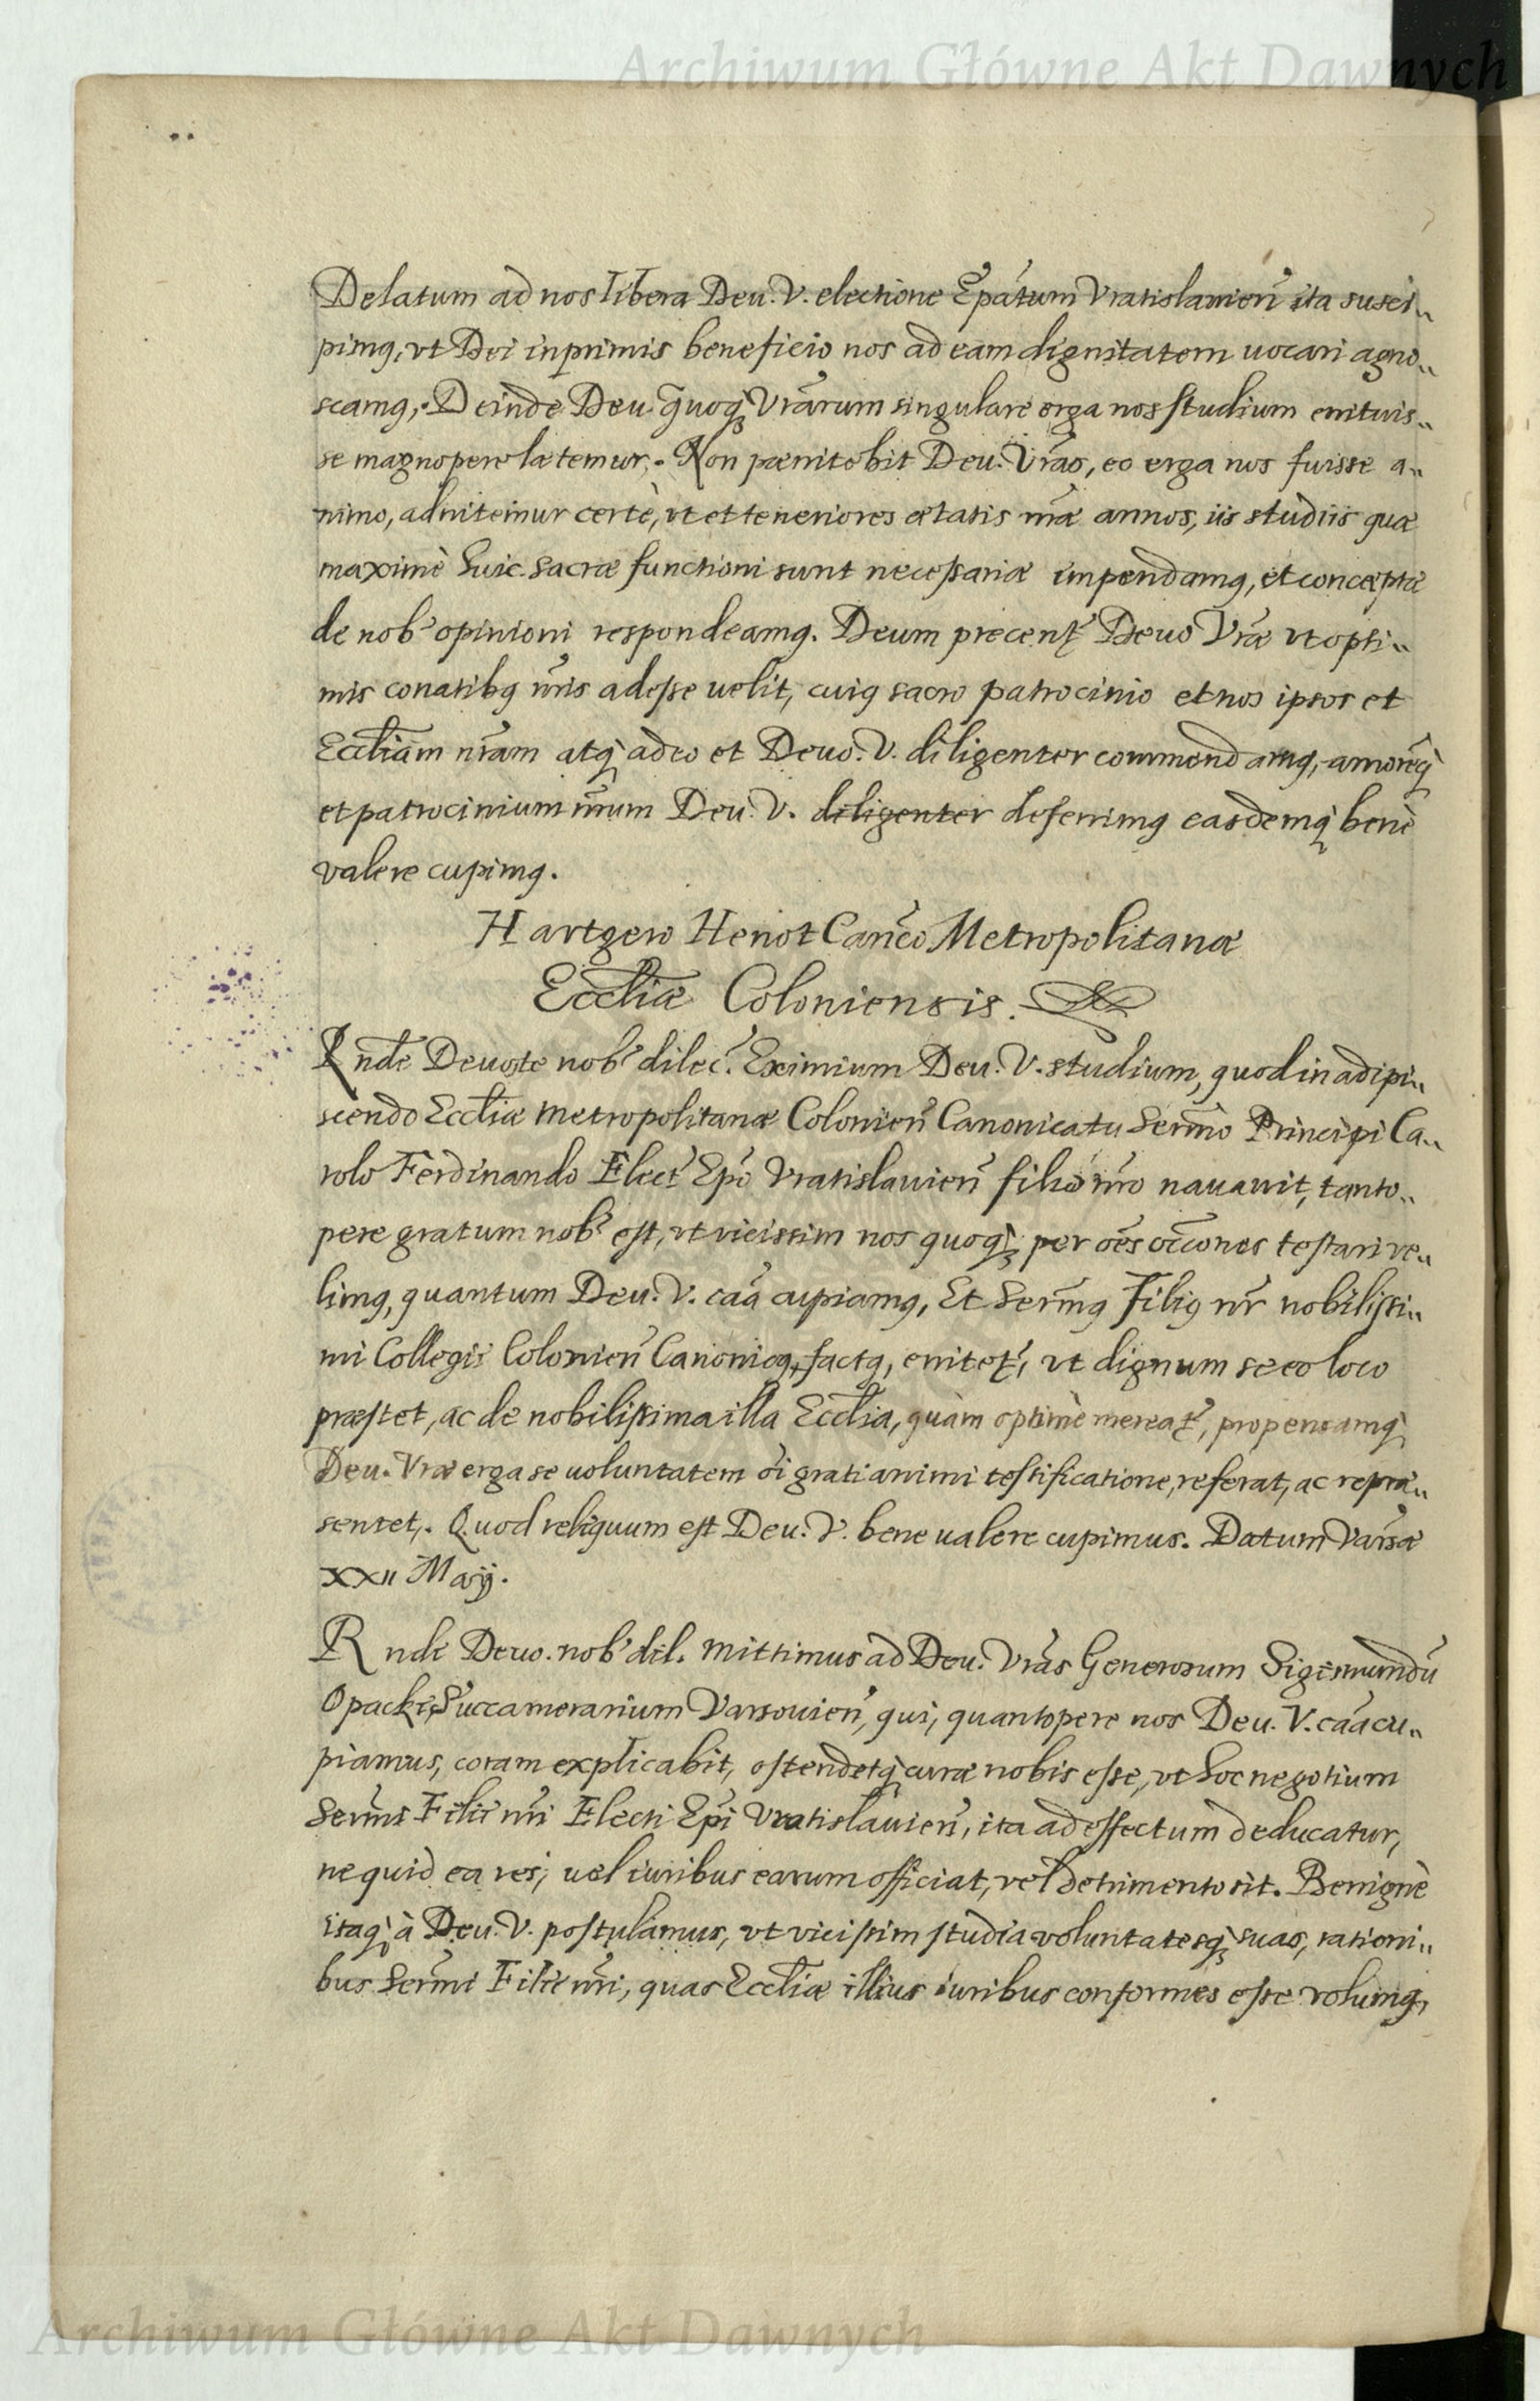 Archiwum Główne Akt Dawnych
Delatum ad nos libera Deu. V. electione Ep̃atum Vratislauień ita susci„
pimꝰ, vt Dei inprimis beneficio nos ad eam dignitatem uocari agno„
scamꝰ, Deinde Deu. quoqꝫ Vrãrum singulare erga nos studium enituis„
se magnopere lætemur. Non pænitebit Deu. Vrãs, eo erga nos fuisse a„
nimo, adnitemur certè, vt et teneriores ætatis nr̃æ annos, iis studiis quæ
maximè huic sacræ functioni sunt necessariæ impendamꝰ, et conceptæ
de nob. opinioni respondeamꝰ. Deum precent᷑ Deuo Vræ vt opti„
mis conatibꝰ nr̃is adesse uelit, cuiꝰ sacro patrocinio et nos ipsos et
Eccl̃iam nr̃am atqꝫ adeo et Deuo. V. diligenter commendamꝰ, amorẽqꝫ
et patrocinium nr̃um Deu. V. diligenter deferimꝰ easdemqꝫ benè
valere cupimꝰ.
Hartgero Henot Cañco Metropolitanæ
Eccl̃iæ Coloniensis.
Rnde Deuote nob. dilec. Eximium Deu. V. studium, quod in adipi„
scendo Eccl̃iæ Metropolitanæ Colonień Canonicatu Serm̃o Principi Ca„
rolo Ferdinando Elect. Ep̃o Vratislauień filio nr̃o nauauit, tanto„
pere gratum nob. est, vt vicissim nos quoqꝫ per oẽs occ̃ones testari ve„
limꝰ, quantum Deu. V. cãa cupiamꝰ, Et Serm̃ꝰ Filiꝰ nr̃ nobilissi„
mi Collegii Colonień Canonicꝰ factꝰ, enitet᷑, vt dignum se eo loco
præstet, ac de nobilissima illa Eccl̃ia, quàm optimè mereat᷑, propensamqꝫ
Deu. Vræ erga se uoluntatem oi grati animi testificatione, referat, ac repræ„
sentet. Quod reliquum est Deu. V. bene ualere cupimus. Datum Varsæ
XXII Maij.
Rnde Deuo. nob. dil. Mittimus ad Deu. Vrãs Generosum Sigismundũ
Opacki, Succamerarium Varsouień, qui, quantopere nos Deu. V. cãa cu„
piamus, coram explicabit, ostendetqꝫ curæ nobis esse, vt hoc negotium
Serm̃i Filii nr̃i Electi Ep̃i Vratislauień, ita ad effectum deducatur,
ne quid ea res, uel iuribus earum officiat, vel detrimento sit. Benignè
itaqꝫ à Deu. V. postulamus, vt vicissim studia voluntatesqꝫ suas, rationi„
bus Serm̃i Filii nr̃i, quas Eccl̃iæ illius iuribus conformes esse volumꝰ,
Archiwum Główne Akt Dawnych